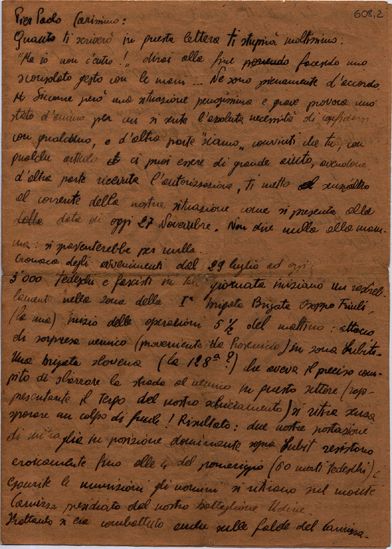 608,2
Pier Paolo Carissimo:
Quanto ti scriverò in questa lettera ti stupirà moltissimo.
"Ma io non c'entro!" dirai alla fine facendo uno
sconsolato gesto con le mani... Ne sono pienamente d'accordo
Mi Siccome però una situazione penosissima e grave provoca uno
stato d'animo per cui si sente l'assoluta necessità di confidarsi
con qualcuno, e d'altra parte "siamo" convinti che tu con
qualche articolo ci puoi essere di grande aiuto, avendone
d'altra parte ricevuta l'autorizzazione, ti metto senz'altro
al corrente della nostra situazione come si presenta alla
data di oggi 27 Novembre. Non dire nulla alla mam-
ma: si spaventerebbe per nulla.
Cronaca degli avvenimenti dal 29 luglio ad oggi
3000 tedeschi e fascisti in giornata iniziano un rastrel-
lamento nella zona della Iª Brigata Osoppo Friuli,
(la mia) inizio delle operazioni 5½ del mattino: attacco
di sorpresa nemico (proveniente da) in zona Subit.
Una brigata slovena (la 128ª?) che aveva il preciso com-
pito di sbarrare la strada al nemico in questo settore (rap-
presentante il tergo del nostro schieramento) si ritira senza
sparare un colpo di fucile! Risultato: due nostre postazioni
di mitraglia in posizione dominante sopra Subit resistono
eroicamente fino alle 4 del pomeriggio (60 morti tedeschi);
esaurite le munizioni gli uomini si ritirano sul monte
Carnizza presidiato dal nostro battaglione Udine.
Frattanto si era combattuto anche sulle falde del Carnizza.